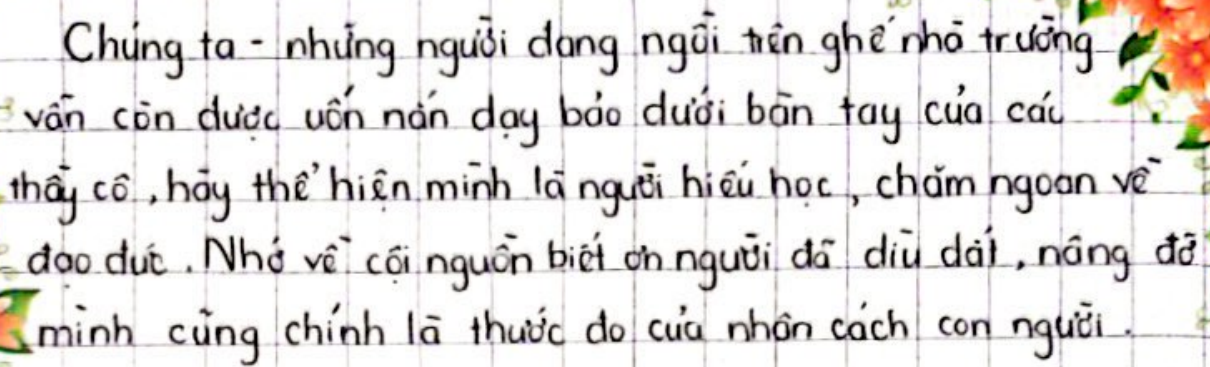 Chúng ta - những người đang ngồi trên ghế nhà trường
vẫn còn được uốn nắn dạy bảo dưới bàn tay của các
thầy cô, hãy thể hiện mình là người hiếu học, chăm ngoan về
đạo đức. Nhớ về cội nguồn biết ơn người đã dìu dắt, nâng đỡ
mình cũng chính là thước đo của nhân cách con người.